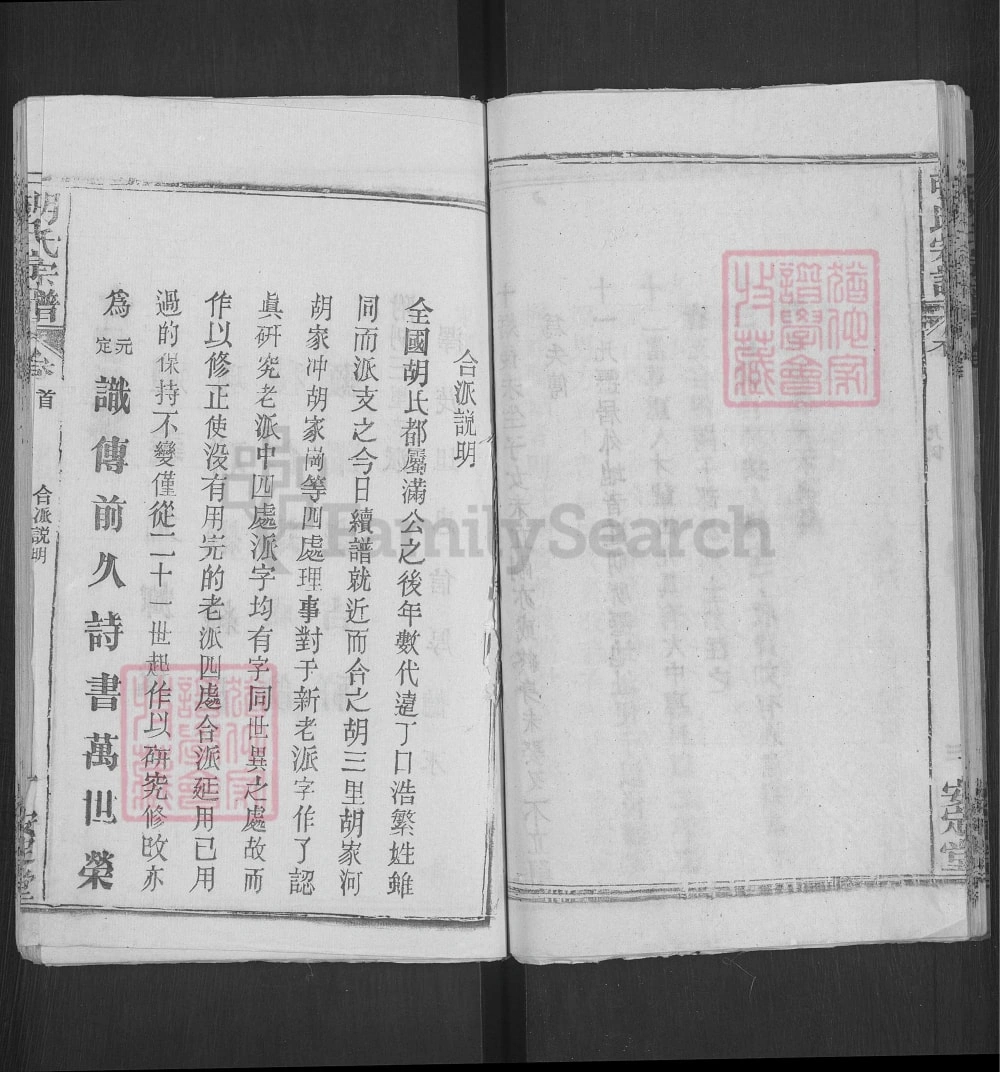 合派説明
全國胡氏都屬滿公之後年數代遠丁口浩繁姓雖
同而派支之今日續譜就近而合之胡三里胡家河
胡家冲胡家崗等四處理事對于新老派字作了認
眞研究老派中四處派字均有字同世異之處故而
作以修正使没有用完的老派四處合派延用已用
過的保持不變僅從二十一世起作以研究修改亦
爲
元定
識傳前久詩書萬世榮
胡氏宗譜
卷首
合派説明
安定堂
胡氏宗譜
安定堂
FamilySearch